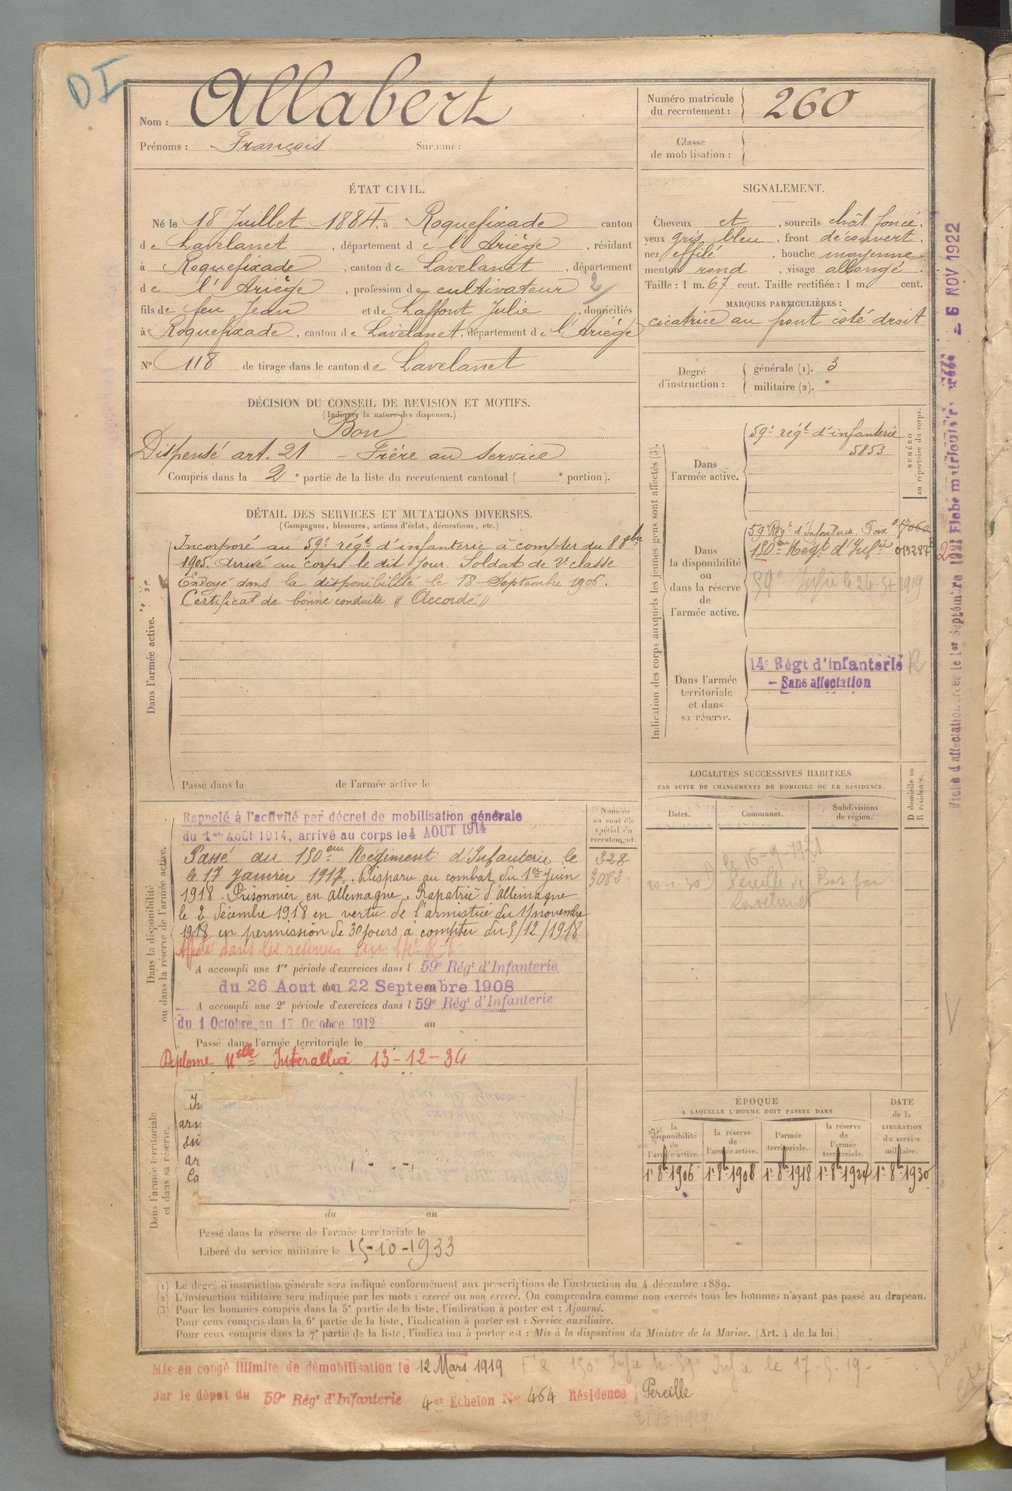 DI
Nom : Allabert
Prénoms : François Surnom :
Numéro matricule du recrutement : 260
Classe de mobilisation :
ÉTAT CIVIL.
Né le 18 Juillet 1884 à Roquefixade canton
de Lavelanet, département de l'Ariège, résidant
à Roquefixade, canton de Lavelanet, département
de l'Ariège, profession de cultivateur 2
fils de feu Jean et de Laffont Julie, domiciliés
à Roquefixade, canton de Lavelanet, département de l'Ariège
N° 118 de tirage dans le canton de Lavelanet
SIGNALEMENT.
Cheveux et, sourcils chât. foncé,
yeux gris bleu, front découvert,
nez effilé, bouche moyenne,
menton rond, visage allongé.
Taille : 1 m. 67 cent. Taille rectifiée : 1 m. cent.
MARQUES PARTICULIÈRES :
cicatrice au front côté droit
Degré d'instruction : générale (1). 3
militaire (2).
DÉCISION DU CONSEIL DE REVISION ET MOTIFS.
(Indiquer la nature des dispenses.)
Bon
Dispensé art. 21 - Frère au service
Compris dans la 2e partie de la liste du recrutement cantonal ( e portion).
DÉTAIL DES SERVICES ET MUTATIONS DIVERSES.
(Campagnes, blessures, actions d'éclat, décorations, etc.)
Dans l'armée active.
Incorporé au 59e régt d'infanterie à compter du 8 8bre
1905. Arrivé au corps le dit jour. Soldat de 2e classe
Envoyé dans la disponibilité le 18 Septembre 1906.
Certificat de bonne conduite « Accordé »
Passé dans la de l'armée active le
Indication des corps auxquels les jeunes gens sont affectés (3).
NUMÉRO au répertoire du corps.
Dans l'armée active.
59e régt d'infanterie
5853
Dans la disponibilité ou dans la réserve de l'armée active.
59e Régt d'Infanterie. Foix
180me Régt d'Infie 013287
59e Infie
Dans l'armée territoriale et dans sa réserve.
14e Régt d'infanterie R
- Sans affectation
- 6 NOV 1922
LOCALITÉS SUCCESSIVES HABITÉES
PAR SUITE DE CHANGEMENTS DE DOMICILE OU DE RÉSIDENCE.
Dates. Communes. Subdivisions de région.
D domicile ou R résidence.
le 16-9-1921
Péreille
Lavelanet
Dans la disponibilité ou dans la réserve de l'armée active.
Numéro au contrôle spécial du recrutement.
328
3083
Rappelé à l'activité par décret de mobilisation générale
du 1er Août 1914, arrivé au corps le 4 AOUT 1914
Passé au 180me Régiment d'Infanterie le
le 17 Janvier 1917. Disparu au combat du 1er Juin
1918. Prisonnier en Allemagne. Rapatrié d'Allemagne
le 2 décembre 1918 en vertu de l'armistice du 11 novembre
1918 en permission de 30 jours à compter du 5/12/1918
Affecté dans les réserves au 14e R.I.
A accompli une 1re période d'exercices dans l 59e Régt d'Infanterie
du 26 Aout au 22 Septembre 1908
A accompli une 2e période d'exercices dans l 59e Régt d'Infanterie
du 1 Octobre au 17 Octobre 1912 au
Passé dans l'armée territoriale le
Diplome Mlle Interalliée 13-12-36
Dans l'armée territoriale et dans sa réserve.
du au
Passé dans la réserve de l'armée territoriale le
Libéré du service militaire le 15-10-1933
ÉPOQUE
A LAQUELLE L'HOMME DOIT PASSER DANS
la disponibilité de l'armée active.
la réserve de l'armée active.
l'armée territoriale.
la réserve de l'armée territoriale.
DATE de la LIBÉRATION du service militaire.
1er 8bre 1906 1er 8bre 1908 1er 8bre 1918 1er 8bre 1924 1er 8bre 1930
(1) Le degré d'instruction générale sera indiqué conformément aux prescriptions de l'instruction du 4 décembre 1889.
(2) L'instruction militaire sera indiquée par les mots : exercé ou non exercé. On comprendra comme non exercés tous les hommes n'ayant pas passé au drapeau.
(3) Pour les hommes compris dans la 5e partie de la liste, l'indication à porter est : Ajourné.
Pour ceux compris dans la 6e partie de la liste, l'indication à porter est : Service auxiliaire.
Pour ceux compris dans la 7e partie de la liste, l'indication à porter est : Mis à la disposition du Ministre de la Marine. (Art. 4 de la loi.)
Mis en congé illimité de démobilisation le 12 Mars 1919
Par le dépot du 59e Régt d'Infanterie 4e Echelon No 464 Résidence Péreille